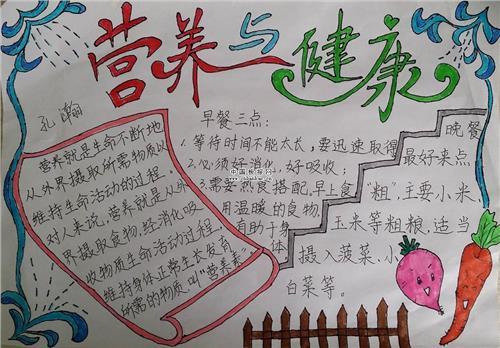 营养与健康
孔瀚
营养就是生命不断地
从外界摄取所需物质以
维持生命活动的过程。
对人来说,营养就是从外
界摄取食物,经消化吸
收物质生命活动过程,
维持身体正常生长发育
所需的物质叫“营养素”
早餐三点:
1.等待时间不能太长,要迅速取得
2.必须好消化,好吸收;
3.需要热食搭配,早上食
用温暖的食物,
有助于身
体
晚餐
最好来点
“粗”,主要小米,
玉米等粗粮,适当
摄入菠菜、小
白菜等。